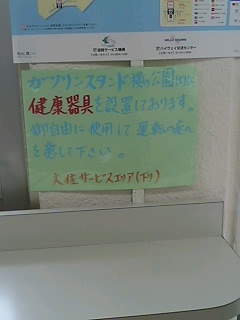 ガソリンスタンド横の公園内に
健康器具を設置しております。
御自由に使用して、運転の疲れ
を癒して下さい。
大佐サービスエリア(下り)